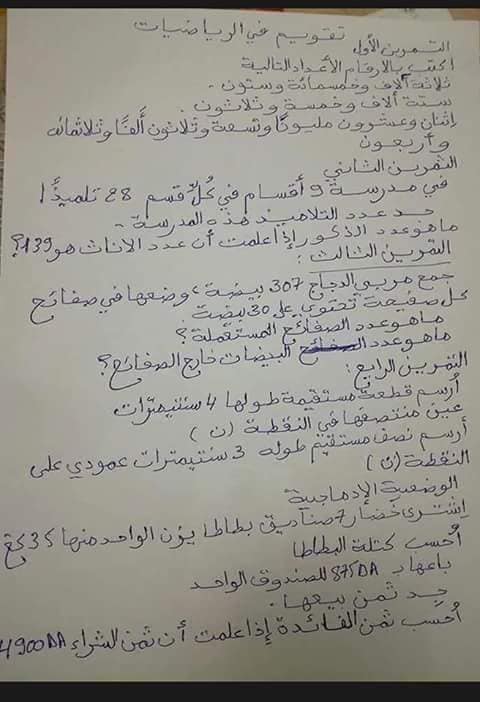 تقويم في الرياضيات
التمرين الأول
اكتب بالارقام الأعداد التالية
ثلاثة آلاف وخمسمائة وستون.
ستة آلاف وخمسة وثلاثون.
إثنان وعشرون مليونًا وتسعة وثلاثون ألفًا وثلاثمائه
وأربعون
التمرين الثاني
في مدرسة 9 أقسام في كُلّ قسم 28 تلميذًا
جد عدد التلاميذ هذه المدرسة.
ماهو عدد الذكور إذا علمت أن عدد الاناث هو 139؟
التمرين الثالث:
جمع مربي الدجاج 307 بيضة، وضعها في صفائح
كل صفيحة تحتوي على 30 بيضة
ماهو عدد الصفائح المستعملة؟
ماهو عدد البيضات خارج الصفائح؟
التمرين الرابع:
أرسم قطعة مستقيمة طولها 4 سنتيمترات
عين منتصفها في النقطة (ن)
أرسم نصف مستقيم طوله 3 سنتيمترات عمودي على
النقطة (ن)
الوضعية الإدماجية
إشترى خضار 7 صناديق بطاطا يزن الواحد منها 35 كغ
أحسب كتلة البطاطا
باعها بـ 875DA للصندوق الواحد
جد ثمن بيعها.
أحسب ثمن الفائدة إذا علمت أن ثمن الشراء 4900DA